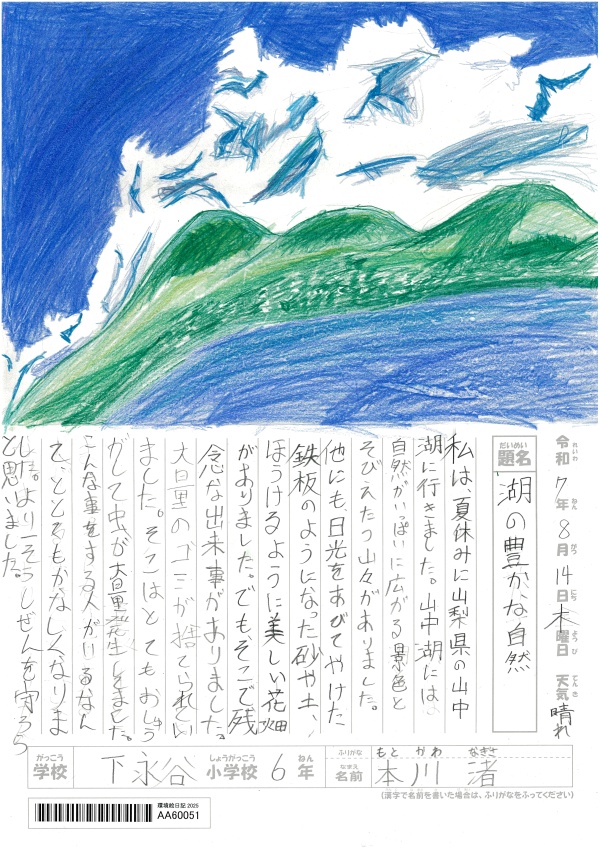 令和7年8月14日木曜日 天気 晴れ
れいわ ねん がつ にち ようび てんき
だいめい
題名 湖の豊かな自然
私は、夏休みに山梨県の山中
湖に行きました。山中湖には
自然がいっぱいに広がる景色と
そびえたつ山々がありました。
他にも、日光をあびてやけた
鉄板のようになった砂や土、
ほうけるように美しい花畑
がありました。でもそこで残
念な出来事がありました。
大量のゴミが捨てられてい
ました。そこはとてもおしゅう
がして虫が大量発生しました。
こんな事をする人がいるなん
て、ととてもかなしくなりま
した。よりいそうしぜんを守ろう
と思いました。
がっこう しょうがっこう ねん
学校 下永谷 小学校 6年
ふりがな もと かわ なぎさ
なまえ
名前 本川 渚
(漢字で名前を書いた場合は、ふりがなをふってください)
環境絵日記 2025
AA60051